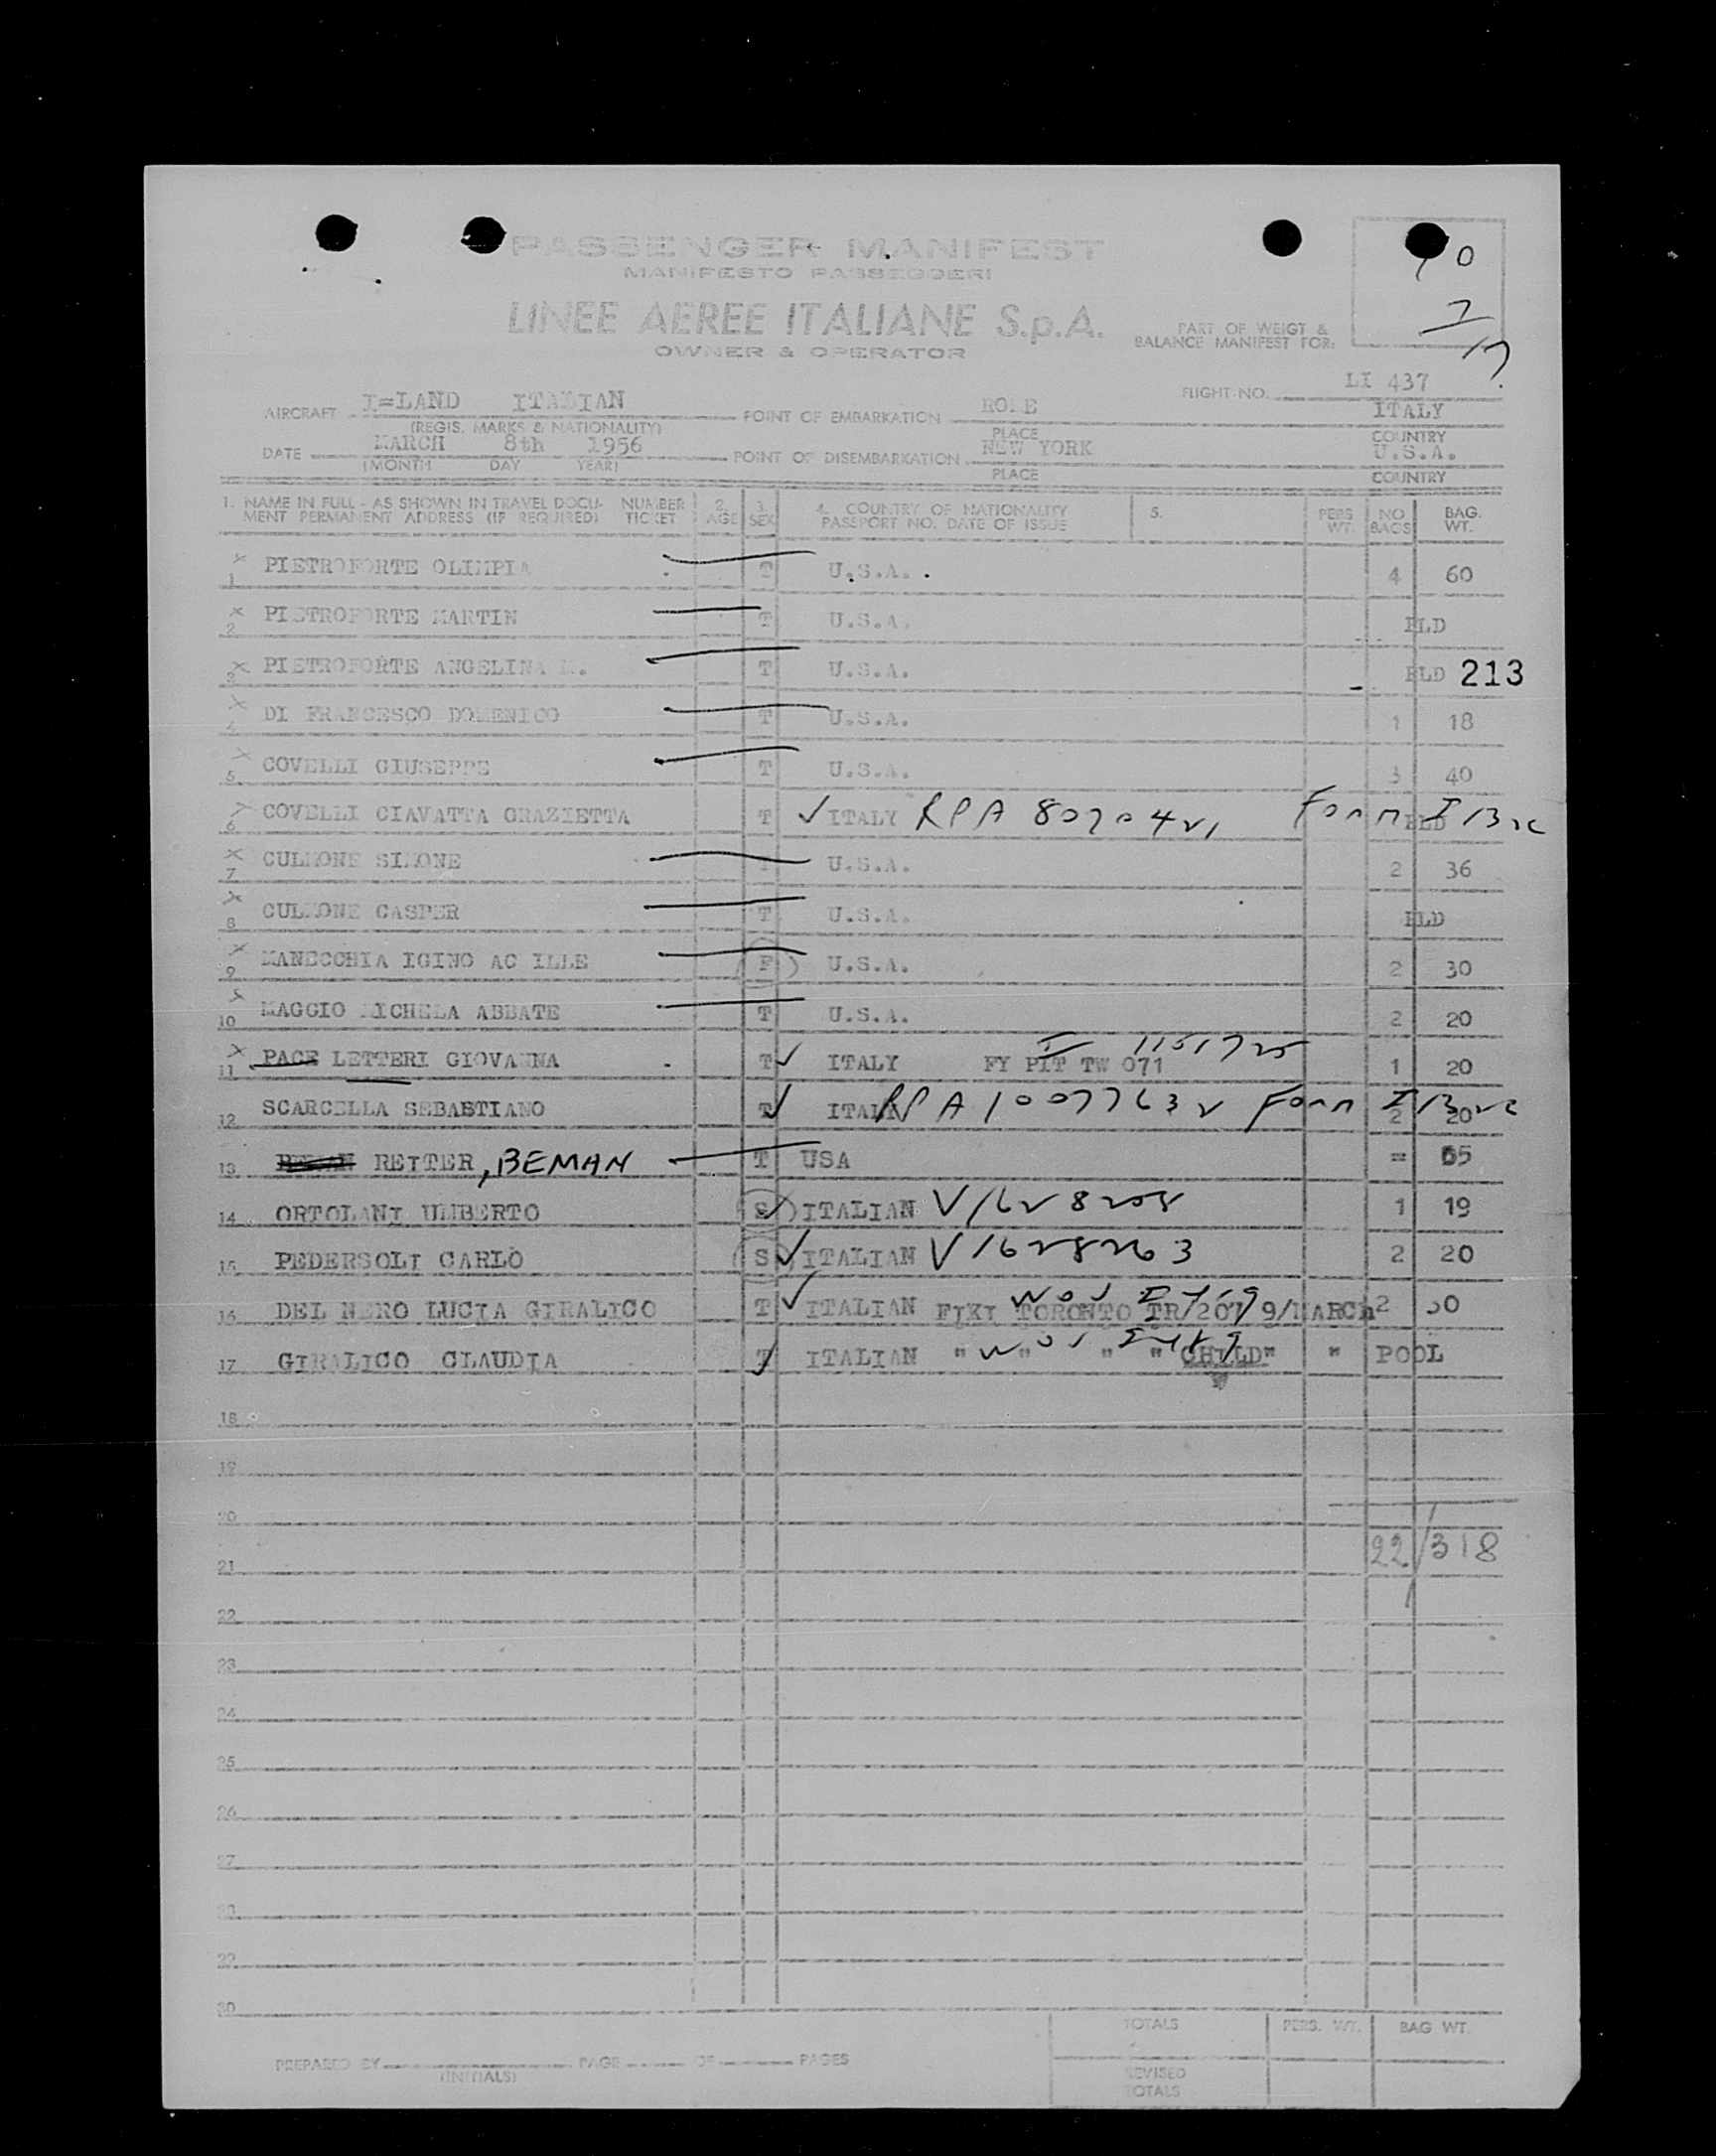 PASSENGER MANIFEST
MANIFESTO PASSEGGERI
LINEE AEREE ITALIANE S.p.A.
OWNER & OPERATOR
PART OF WEIGT &
BALANCE MANIFEST FOR:
FLIGHT NO. LI 437
AIRCRAFT I=LAND ITALIAN POINT OF EMBARKATION ROME ITALY
(REGIS. MARKS & NATIONALITY) PLACE COUNTRY
DATE MARCH 8th 1956 POINT OF DISEMBARKATION NEW YORK U.S.A.
(MONTH DAY YEAR) PLACE COUNTRY
1. NAME IN FULL - AS SHOWN IN TRAVEL DOCU- NUMBER 2. 3. 4. COUNTRY OF NATIONALITY 5. PERS NO BAG.
MENT PERMANENT ADDRESS (IF REQUIRED) TICKET AGE SEX PASSPORT NO. DATE OF ISSUE WT. BAGS WT.
1 PIETROFORTE OLIMPIA T U.S.A. 4 60
2 PIETROFORTE MARTIN T U.S.A. PLD
3 PIETROFORTE ANGELINA M. T U.S.A. PLD 213
4 DI FRANCESCO DOMENICO T U.S.A. 1 18
5 COVELLI GIUSEPPE T U.S.A. 3 40
6 COVELLI CIAVATTA GRAZIETTA T ITALY RPA Form I
7 CULMONE SIMONE T U.S.A. 2 36
8 CULMONE CASPER T U.S.A. PLD
9 MANECCHIA IGINO AC ILLE F U.S.A. 2 30
10 MAGGIO MICHELA ABBATE T U.S.A. 2 20
11 PACE LETTERI GIOVANNA T ITALY FY PIT TW 071 1 20
12 SCARCELLA SEBASTIANO T ITALY RPA Form I 2 20
13 REITER, BEMAN T USA = 65
14 ORTOLANI UMBERTO S ITALIAN 1 19
15 PEDERSOLI CARLO S ITALIAN V1628263 2 20
16 DEL NERO LUCIA GIRALICO T ITALIAN FIKI TORONTO TR/207 9/MARCH 2 30
17 GIRALICO CLAUDIA T ITALIAN " " " " CHILD" " POOL
18
19
20
22/318
21
22
23
24
25
26
27
28
29
30
TOTALS PERS. WT. BAG WT.
PREPARED BY PAGE OF PAGES
(INITIALS)
REVISED
TOTALS